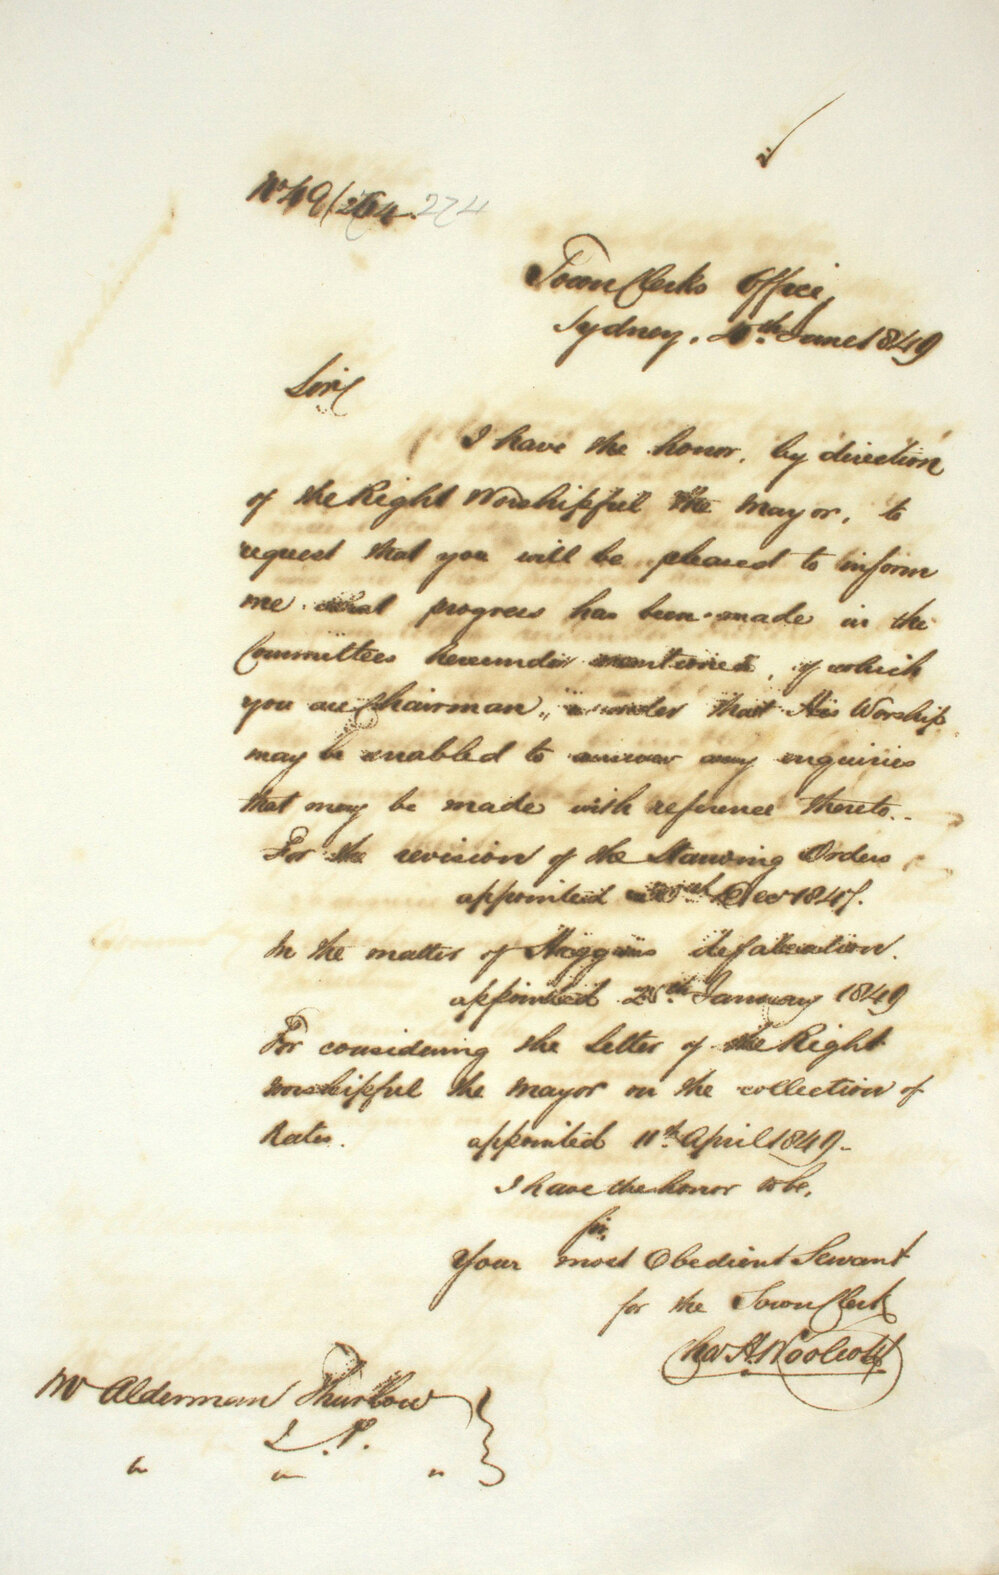 No 49/264. 274
Town Clerks Office,
Sydney, June 1849
Sir,
I have the honor, by direction
of the Right Worshipful the Mayor, to
request that you will be pleased to inform
me what progress has been made in the
Committees hereunder mentioned, of which
you are Chairman, in order that His Worship
may be enabled to answer any enquiries
that may be made with reference thereto.
For the revision of the Standing Orders
appointed Decr 1847.
In the matter of defalcation.
appointed January 1849
For considering the Letter of the Right
Worshipful the Mayor on the collection of
Rates. appointed 11th April 1849.
I have the honor to be,
Sir,
Your most Obedient Servant
for the Town Clerk
Chas H Woolcott
Mr Alderman Thurlow
" " "